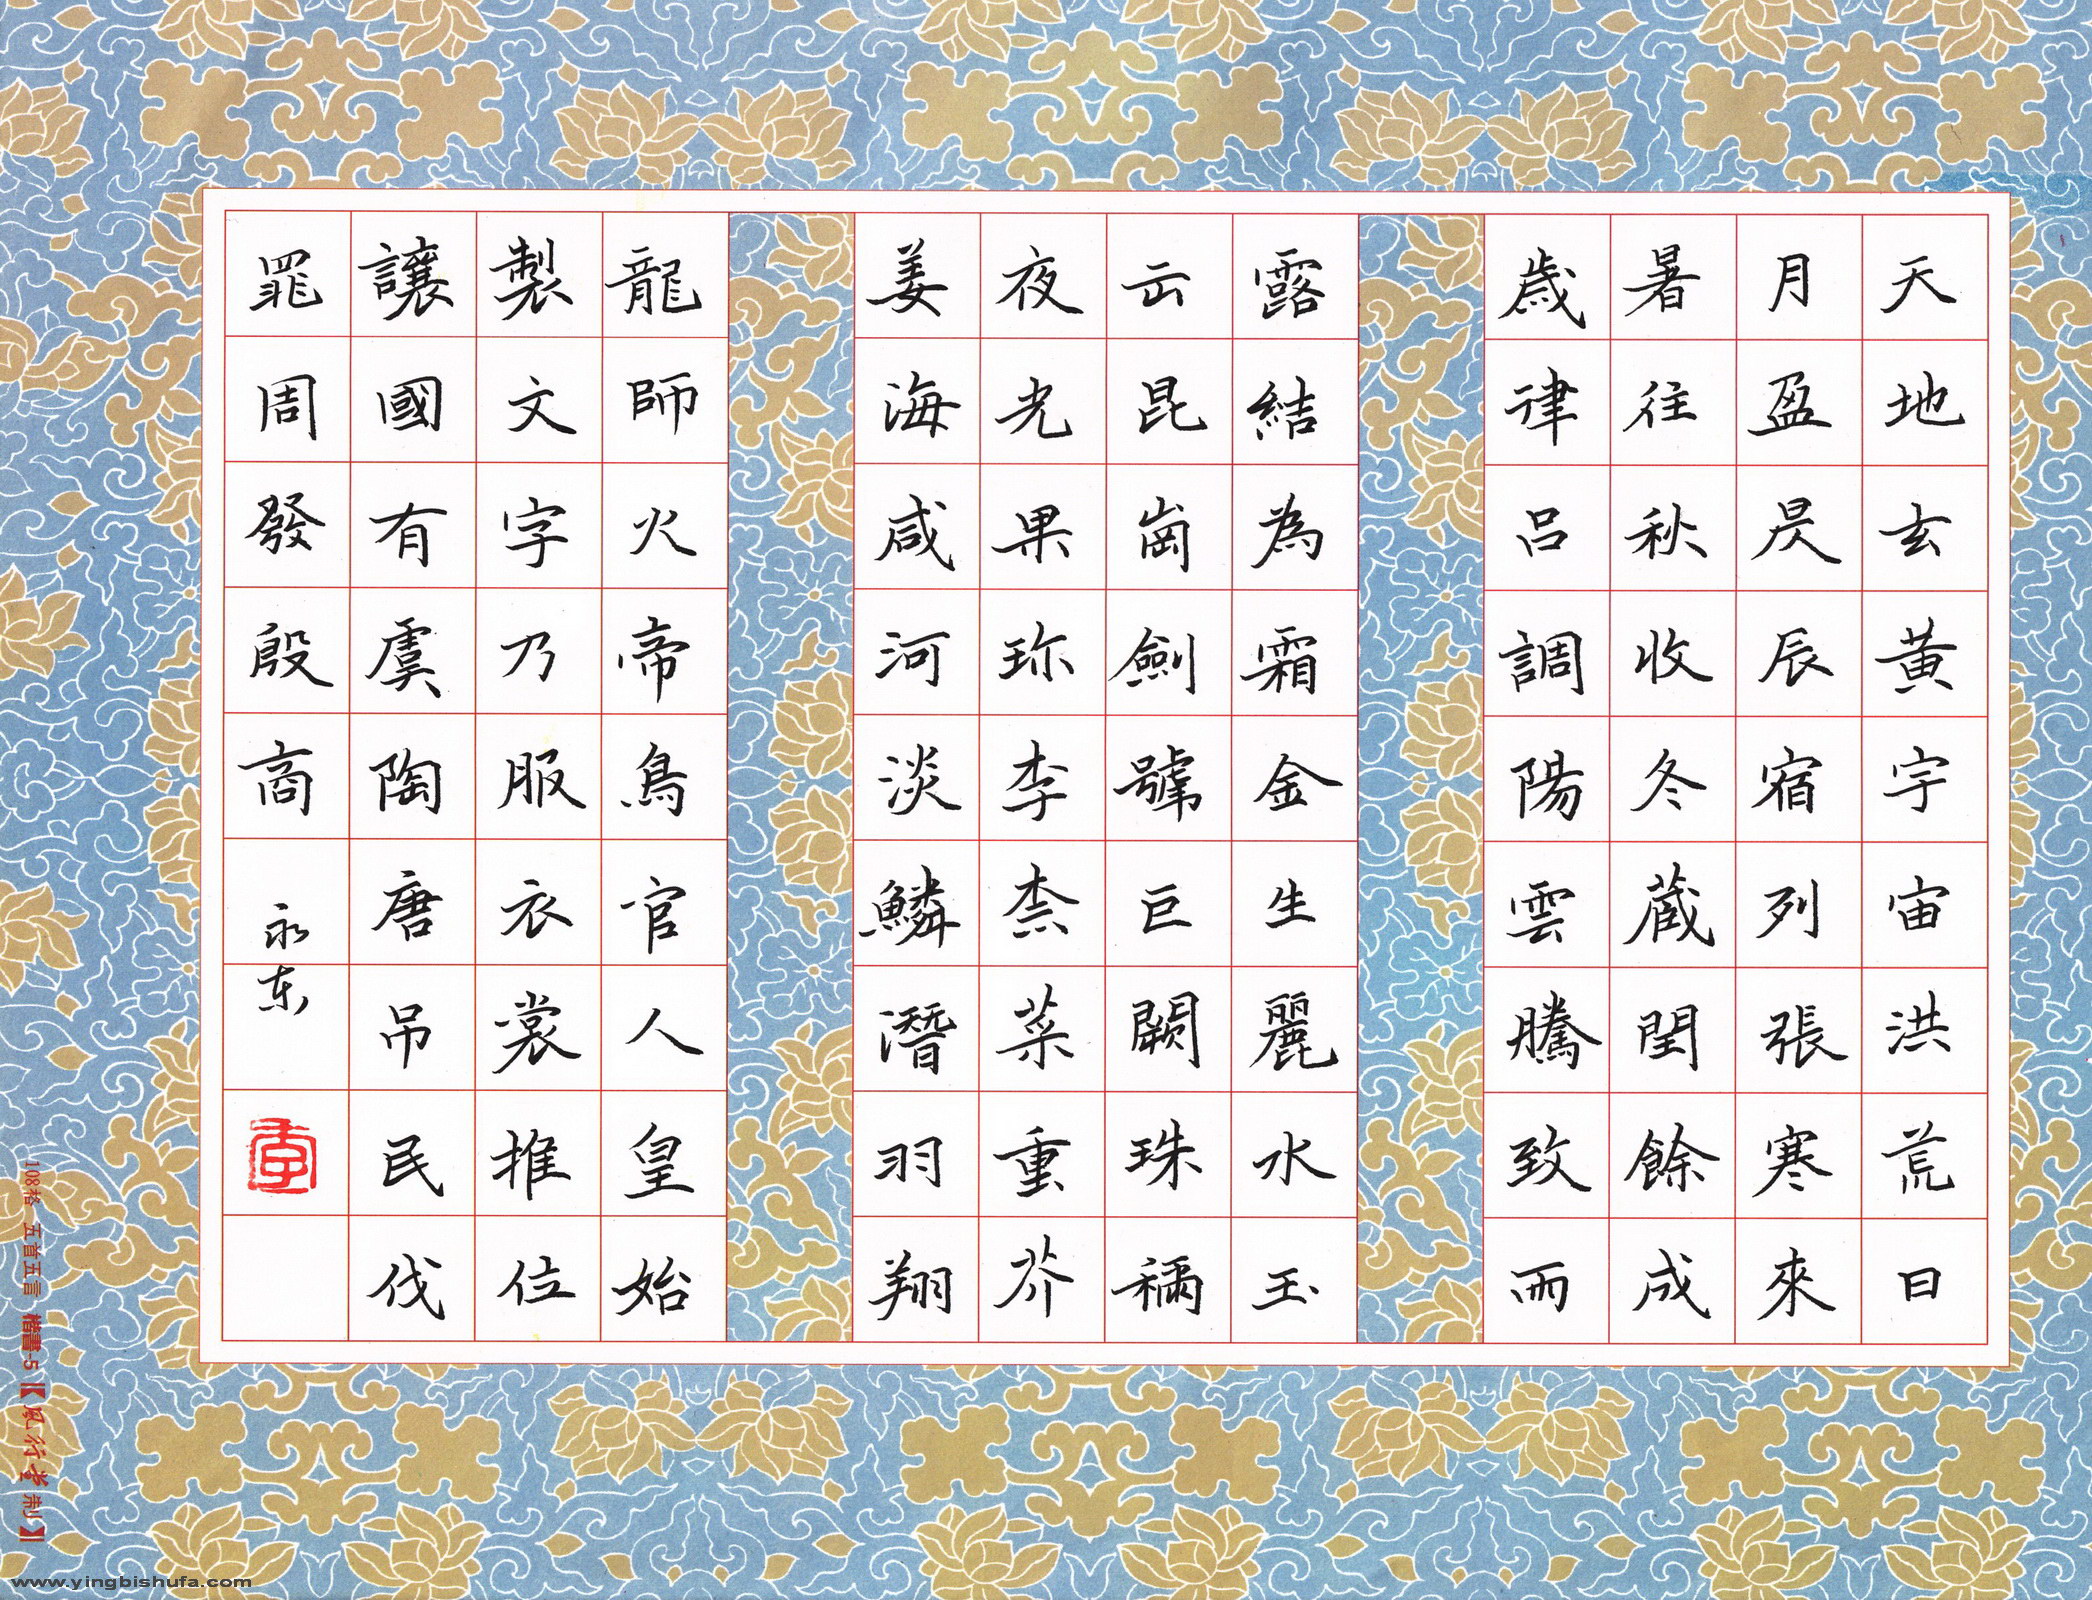 天地玄黃宇宙洪荒日
月盈昃辰宿列張寒來
暑往秋收冬蔵閏餘成
歲律呂調陽雲騰致雨
露結為霜金生麗水玉
云昆崗劍號巨闕珠稱
夜光果珍李柰菜重芥
姜海咸河淡鱗潛羽翔
龍師火帝鳥官人皇始
製文字乃服衣裳推位
讓國有虞陶唐吊民伐
罪周發殷商
永东
李
108格 五首五言 楷書-5【風行堂制】
www.yingbishufa.com